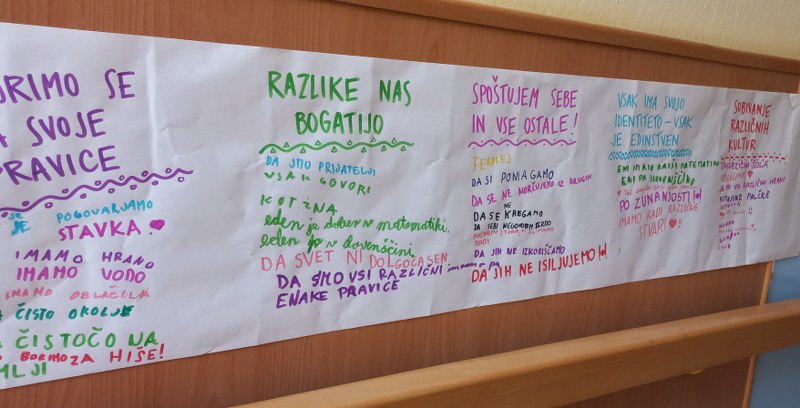 ORIMO SE
A SVOJE
PRAVICE
SE POGOVARJAMO
JE STAVKA!
IMAMO HRANO
IMAMO VODO
IMAMO OBLAČILA
ČISTO OKOLJE
ČISTOČO NA
BORIMO ZA HIŠE!
MLJI
RAZLIKE NAS
BOGATIJO
DA SMO PRIJATELJI
VSAK GOVORI
KOT ZNA
eden je dober v matematiki,
eden je v slovenščini
DA SVET NI DOLGOČASEN
DA SMO VSI RAZLIČNI
ENAKE PRAVICE
SPOŠTUJEM SEBE
IN VSE OSTALE!
DA SI POMAGAMO
DA SE NE NORČUJEMO IZ DRUGIH
DA SE NE KREGAMO
DA JIH NE IZKORIŠČAMO
DA JIH NE ISILJUJEMO!
VSAK IMA SVOJO
IDENTITETO - VSAK
JE EDINSTVEN
ENI IMAJO RADI MATEMATIKO
ENI PA SLOVENŠČINO
PO ZUNANJOSTI!
IMAMO RADI RAZLIČNE
STVARI
SOBIVANJE
RAZLIČNIH
KULTUR
HRANO
PALČKE